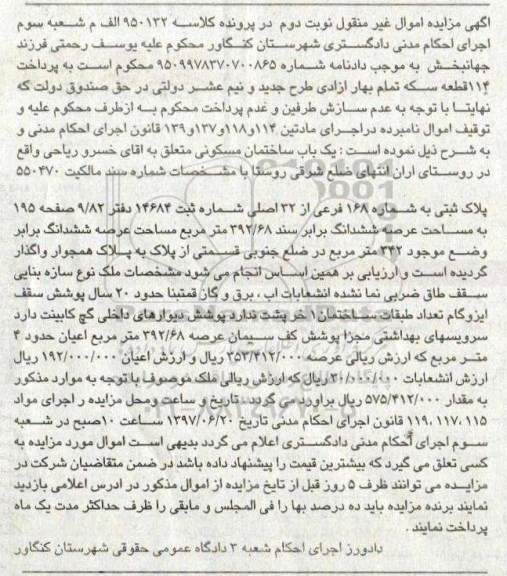 اگهی مزایده اموال غیر منقول نوبت دوم در پرونده کلاسه ۹۵۰۱۳۲ الف م شعبه سوم
اجرای احکام مدنی دادگستری شهرستان کنگاور محکوم علیه یوسف رحمتی فرزند
جهانبخش به موجب دادنامه شماره ۹۵۰۹۹۷۸۳۷۰۷۰۰۸۶۵ محکوم است به پرداخت
۱۱۴قطعه سکه تمام بهار ازادی طرح جدید و نیم عشر دولتی در حق صندوق دولت که
نهایتا با توجه به عدم سازش طرفین و عدم پرداخت محکوم به ازطرف محکوم علیه و
توقیف اموال نامبرده دراجرای مادتین ۱۱۴و۱۱۸و۱۳۷و۱۳۹ قانون اجرای احکام مدنی و
به شرح ذیل نموده است : یک باب ساختمان مسکونی متعلق به اقای خسرو ریاحی واقع
در روستای اران انتهای ضلع شرقی روستا با مشخصات شماره سند مالکیت ۵۵۰۴۷۰
پلاک ثبتی به شماره ۱۶۸ فرعی از ۳۲ اصلی شماره ثبت ۱۴۶۸۴ دفتر ۹/۸۲ صفحه ۱۹۵
به مساحت عرصه ششدانگ برابر سند ۳۹۲/۶۸ متر مربع مساحت عرصه ششدانگ برابر
وضع موجود ۳۴۲ متر مربع در ضلع جنوبی قسمتی از پلاک به پلاک همجوار واگذار
گردیده است و ارزیابی بر همین اساس انجام می شود مشخصات ملک نوع سازه بنایی
سقف طاق ضربی نما نشده انشعابات اب ، برق و گاز قمتبنا حدود ۲۰ سال پوشش سقف
ایزوگام تعداد طبقات ساختمان۱ خر پشت ندارد پوشش دیوارهای داخلی گچ کابینت دارد
سرویسهای بهداشتی مجزا پوشش کف سیمان عرصه ۳۹۲/۶۸ متر مربع اعیان حدود ۴
متر مربع که ارزش ریالی عرصه ۳۵۳/۴۱۲/۰۰۰ ریال و ارزش اعیان ۱۹۲/۰۰۰/۰۰۰ ریال
ارزش انشعابات ۲۰/۰۰۰/۰۰۰ ریال که ارزش ریالی ملک موصوف با توجه به موارد مذکور
به مقدار ۵۷۵/۴۱۲/۰۰۰ ریال براورد می گردد . تاریخ و ساعت ومحل مزایده ر اجرای مواد
۱۱۵ ،۱۱۷ ،۱۱۹ قانون اجرای احکام مدنی تاریخ ۱۳۹۷/۰۶/۲۰ ساعت ۱۰صبح در شعبه
سوم اجرای احکام مدنی دادگستری اعلام می گردد بدیهی است اموال مورد مزایده به
کسی تعلق می گیرد که بیشترین قیمت را پیشنهاد داده باشد در ضمن متقاضیان شرکت در
مزایده می توانند ظرف ۵ روز قبل از تایخ مزایده از اموال مذکور در ادرس اعلامی بازدید
نمایند برنده مزایده باید ده درصد بها را فی المجلس و مابقی را ظرف حداکثر مدت یک ماه
پرداخت نمایند .
دادورز اجرای احکام شعبه ۳ دادگاه عمومی حقوقی شهرستان کنگاور